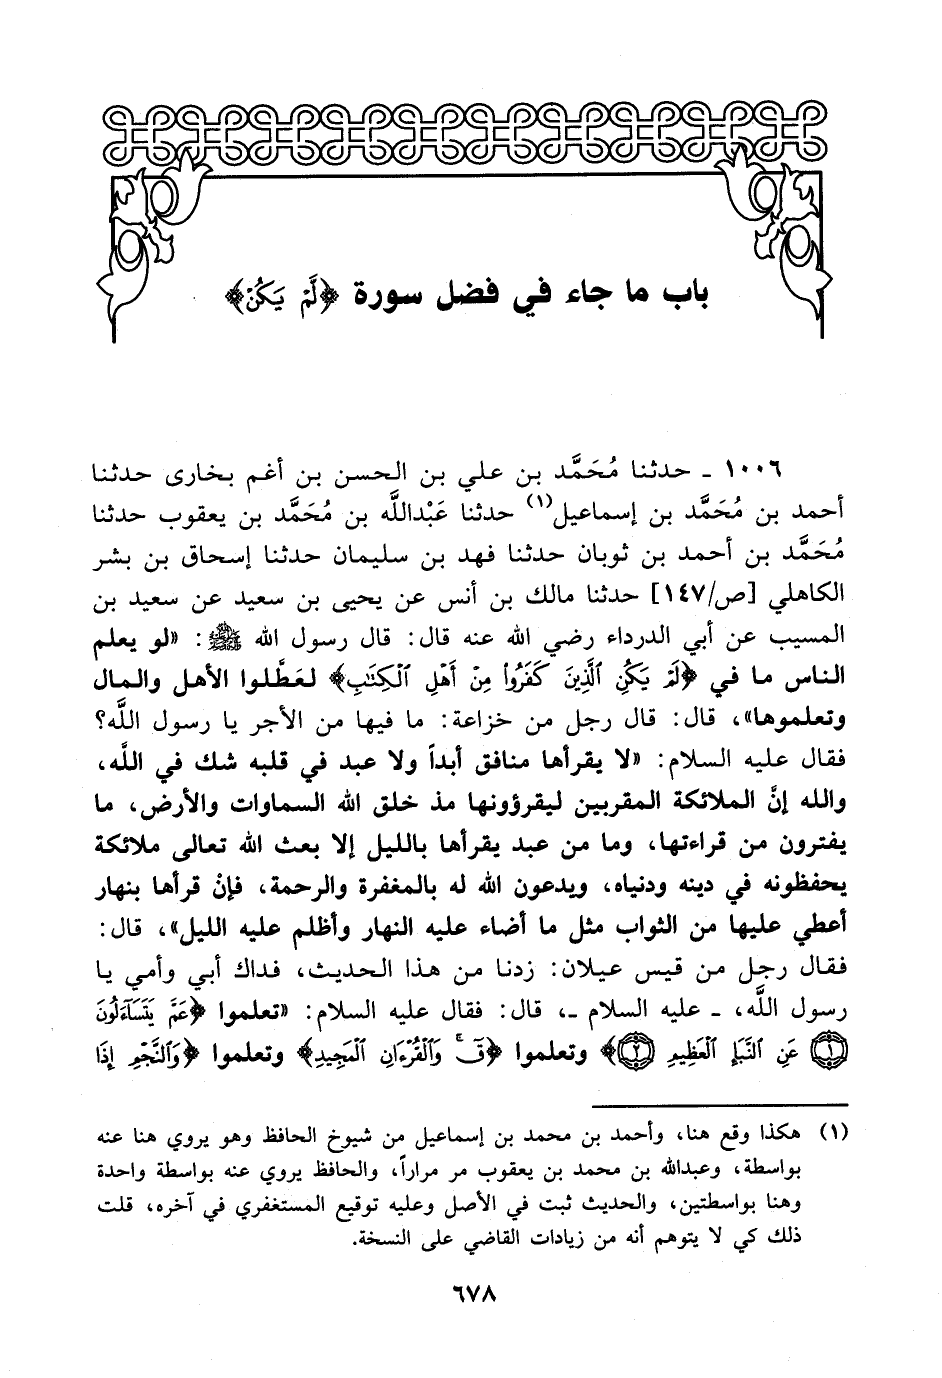 باب ما جاء في فضل سورة ﴿لَمْ يَكُنْ﴾
١٠٠٦ ـ حدثنا مُحَمَّد بن علي بن الحسن بن أغم بخارى حدثنا
أحمد بن مُحَمَّد بن إسماعيل(١) حدثنا عَبْدالله بن مُحَمَّد بن يعقوب حدثنا
مُحَمَّد بن أحمد بن ثوبان حدثنا فهد بن سليمان حدثنا إسحاق بن بشر
الكاهلي [ص/١٤٧] حدثنا مالك بن أنس عن يحيى بن سعيد عن سعيد بن
المسيب عن أبي الدرداء رضي الله عنه قال: قال رسول الله ﷺ: «لو يعلم
الناس ما في ﴿لَمْ يَكُنِ ٱلَّذِينَ كَفَرُوا۟ مِنْ أَهْلِ ٱلْكِتَٰبِ﴾ لعَطَّلوا الأهل والمال
وتعلموها»، قال: قال رجل من خزاعة: ما فيها من الأجر يا رسول اللَّه؟
فقال عليه السلام: «لا يقرأها منافق أبداً ولا عبد في قلبه شك في الله،
والله إنَّ الملائكة المقربين ليقرؤونها مذ خلق الله السماوات والأرض، ما
يفترون من قراءتها، وما من عبد يقرأها بالليل إلا بعث الله تعالى ملائكة
يحفظونه في دينه ودنياه، ويدعون الله له بالمغفرة والرحمة، فإنْ قرأها بنهار
أعطي عليها من الثواب مثل ما أضاء عليه النهار وأظلم عليه الليل»، قال:
فقال رجل من قيس عيلان: زدنا من هذا الحديث، فداك أبي وأمي يا
رسول اللَّه، ـ عليه السلام ـ، قال: فقال عليه السلام: «تعلموا ﴿عَمَّ يَتَسَآءَلُونَ
۝١ عَنِ ٱلنَّبَإِ ٱلْعَظِيمِ ۝٢﴾ وتعلموا ﴿قٓ ۚ وَٱلْقُرْءَانِ ٱلْمَجِيدِ﴾ وتعلموا ﴿وَٱلنَّجْمِ إِذَا
(١) هكذا وقع هنا، وأحمد بن محمد بن إسماعيل من شيوخ الحافظ وهو يروي هنا عنه
بواسطة، وعبدالله بن محمد بن يعقوب مر مراراً، والحافظ يروي عنه بواسطة واحدة
وهنا بواسطتين، والحديث ثبت في الأصل وعليه توقيع المستغفري في آخره، قلت
ذلك كي لا يتوهم أنه من زيادات القاضي على النسخة.
٦٧٨